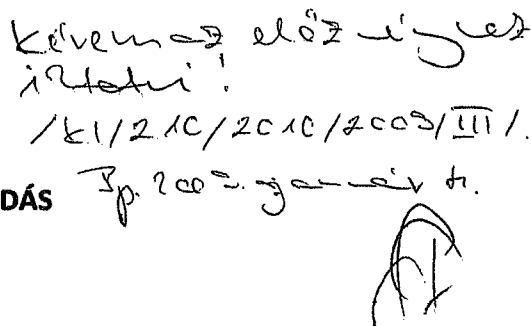 Kérem az előz
iktatni!
/KI/210/2010/2009/III/.
DÁS Bp. 2009. január